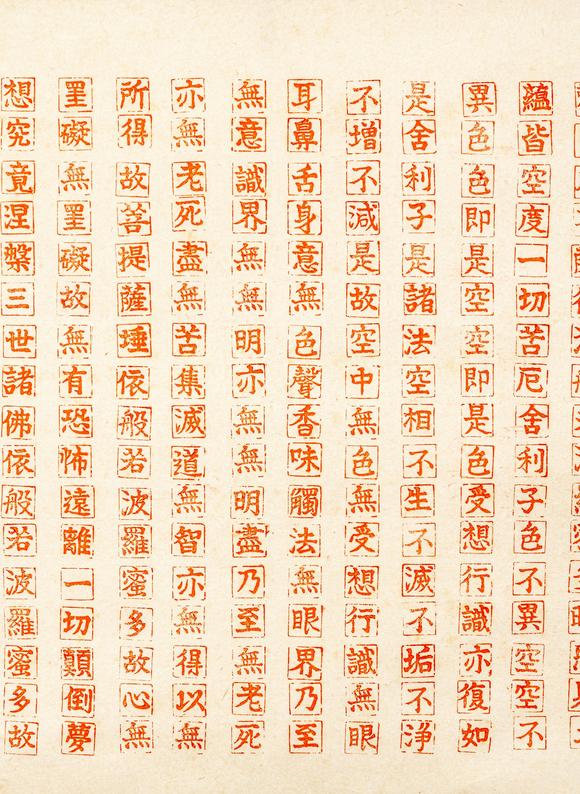 蘊皆空度一切苦厄舍利子色不異空空不
異色色即是空空即是色受想行識亦復如
是舍利子是諸法空相不生不滅不垢不淨
不增不減是故空中無色無受想行識無眼
耳鼻舌身意無色聲香味觸法無眼界乃至
無意識界無無明亦無無明盡乃至無老死
亦無老死盡無苦集滅道無智亦無得以無
所得故菩提薩埵依般若波羅蜜多故心無
罣礙無罣礙故無有恐怖遠離一切顛倒夢
想究竟涅槃三世諸佛依般若波羅蜜多故